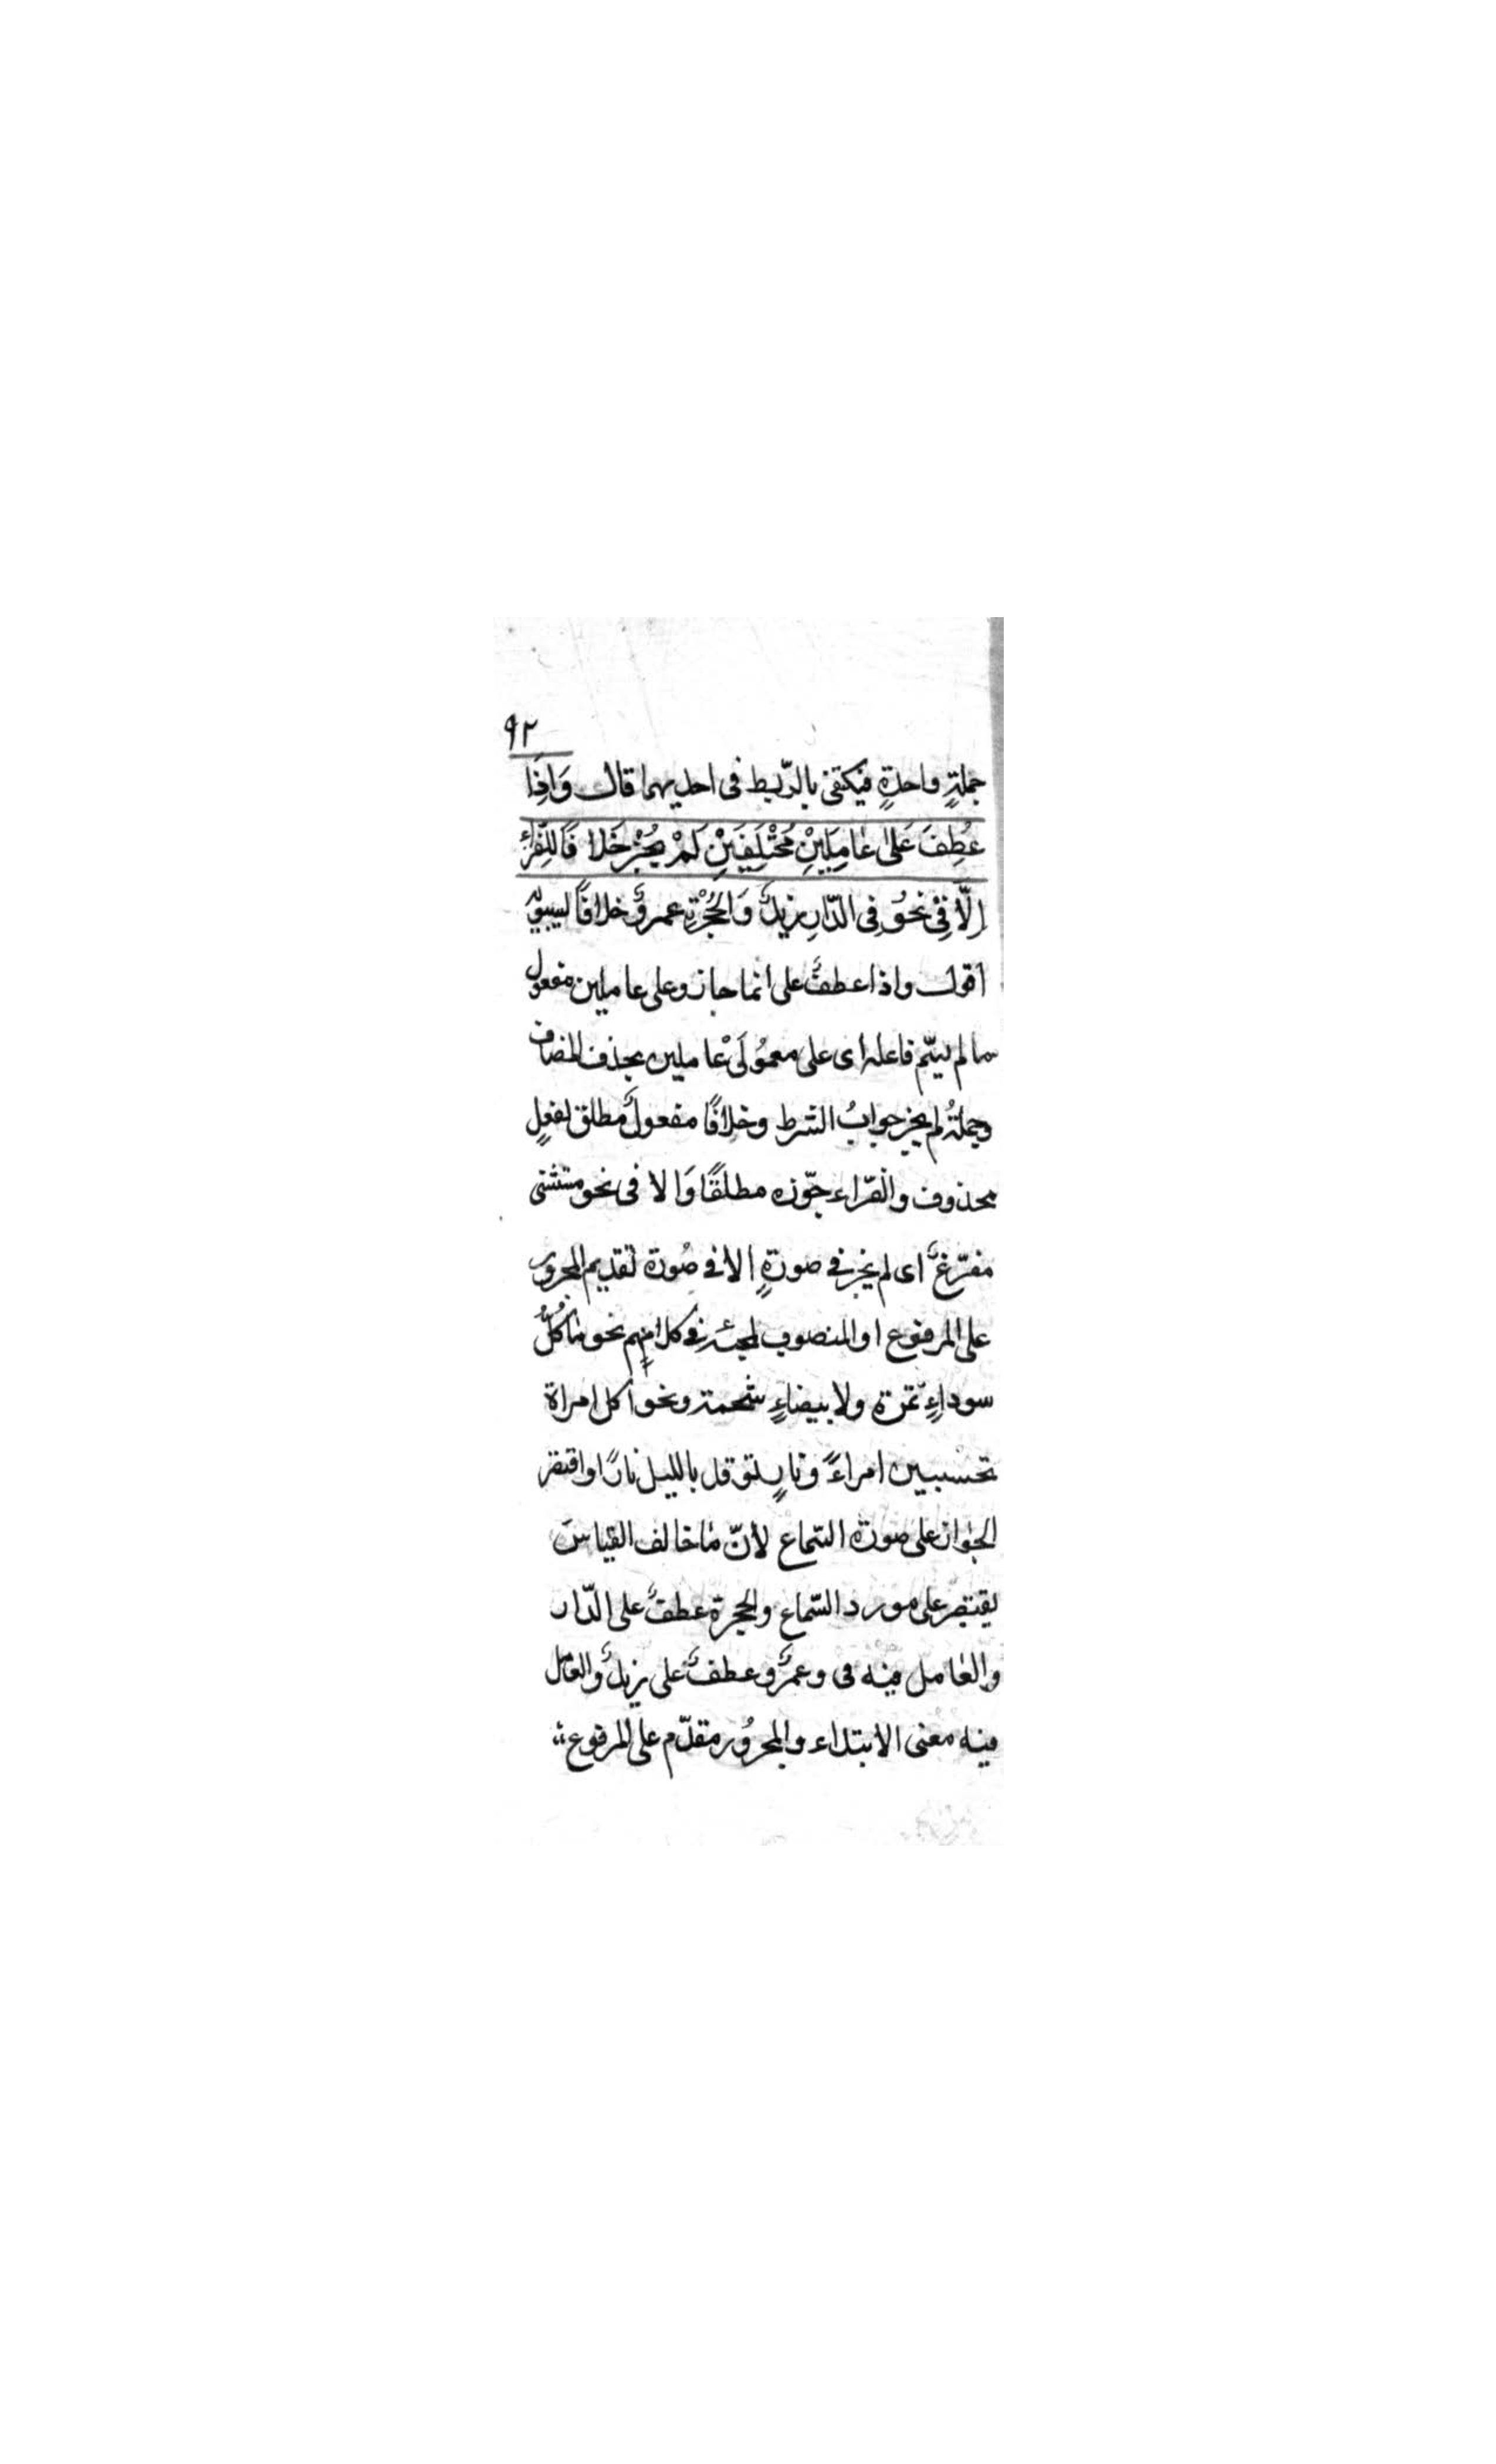 ٩٢
جملةٍ واحدةٍ فيكتفى بالرّبط فى احديهما قال وَاِذَا
عُطِفَ عَلىٰ عٰامِلَيْنِ مُخْتَلِفَيْنِ لَمْ يَجُزْ خَلافًا لِلْفَرّاءِ
اِلّا فِىْ نَحْوُ فِى الدّارِ زيدٌ وَالحُجْرَةِ عمروٌ خلافًا لسيبويه
اقول واذا عطفٌ على انما جاز وعلى عاملين مفعول
مالم يسّم فاعله اى على معمُولَىْ عاملين بحذف المضاف
وجملةُ لم يجز جوابُ الشرط وخلافًا مفعولٌ مطلق لفعلٍ
محذوف والفرّاء جوّزه مطلقًا وَالا فى نحو مستثنى
مفرّغٌ اى لم يجز فى صورةٍ الا فى صُورة تقديم المجرور
على المرفوع او المنصوب لمجيئه فى كلامهم نحو مٰا كُلُّ
سوداءٍ تمرة ولا بيضاءٍ شحمة ونحو أكل امراة
تحسبين امراءً ونارٍ توقد بالليل نارًا واقتصر
الجواز على صورة السّماع لأنّ مٰا خالف القياسَ
يقتصر على مورد السّماع والحجرة عطفٌ على الدّار
والعٰامل فيه فى وعمروٌ عطفٌ على زيدٌ والعٰامل
فيه معنى الابتداء والمجرُور مقدّم على المرفوع